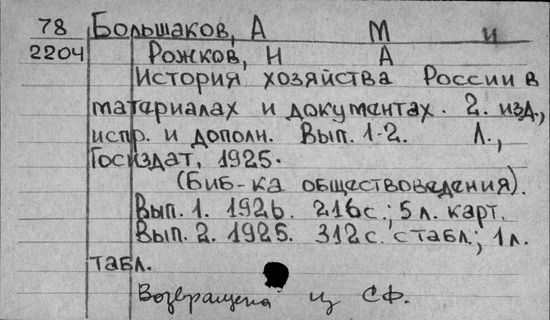 78 Большаков, А М и
2204 Рожков, Н А
История хозяйства России в
материалах и документах. 2. изд.,
испр. и дополн. Вып. 1-2. Л.,
Госиздат, 1925.
(Биб-ка обществоведения).
Вып. 1. 1926. 216 с.; 5 л. карт.
Вып. 2. 1925. 312 с. с табл.; 1 л.
табл.
Возвращена из СФ.